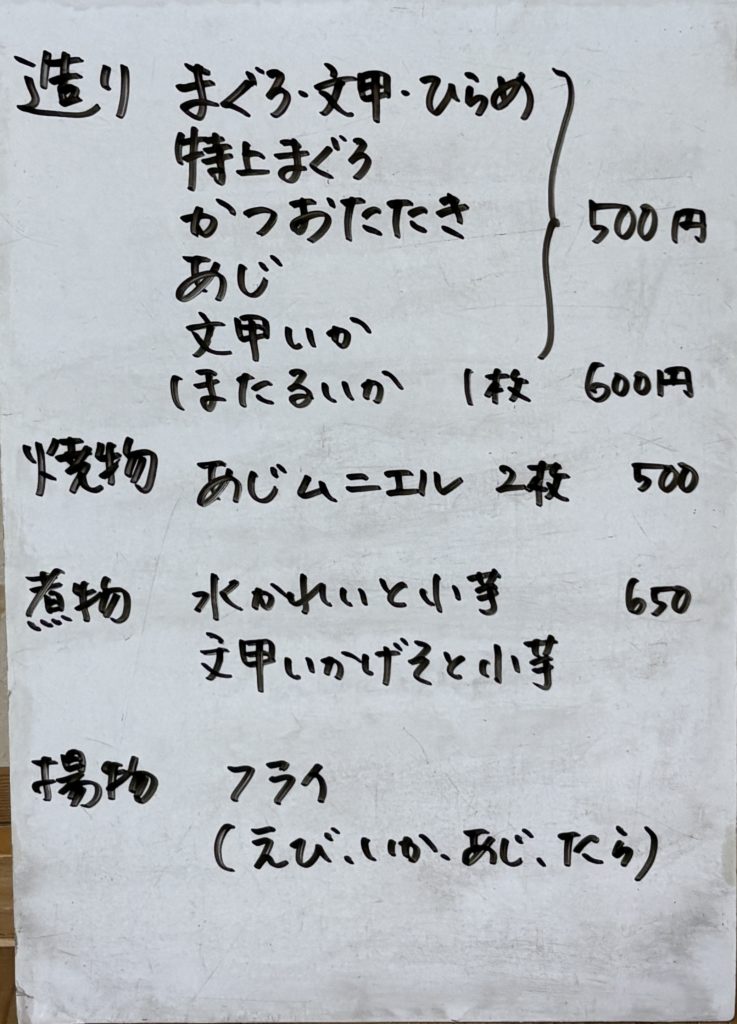 造り まぐろ・文甲・ひらめ
特上まぐろ
かつおたたき 500円
あじ
文甲いか
ほたるいか 1枚 600円
焼物 あじムニエル 2枚 500
煮物 水かれいと小芋 650
文甲いかげそと小芋
揚物 フライ
(えび、いか、あじ、たら)